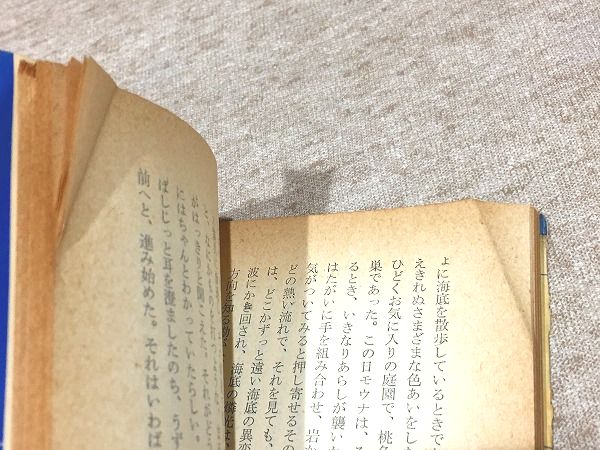 よに海底を散歩しているときで
えきれぬさまざまな色あいをした
ひどくお気に入りの庭園で、桃色
巣であった。この日モウナは、
るとき、いきなりあらしが襲い
はたがいに手を組み合わせ、岩か
気がついてみると押し寄せるその
どの熱い流れで、それを見ても、
は、どこかずっと遠い海底の異変
波にかき回され、海底の燐光は
方向を知る
と、なにか
がはっきりと聞こえた。それがどう
にはちゃんとわかっていたらしい。
ばしじっと耳を澄ましたのち、うず
前へと、進み始めた。それはいわば